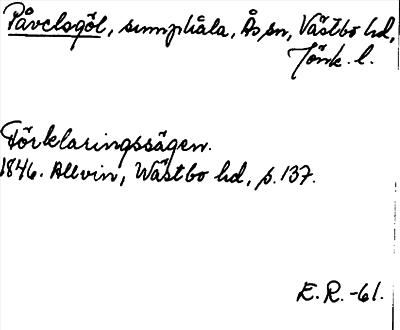 Påvelsgöl, sumphåla, Ås sn, Västbo hd,
Jönk. l.
Förklaringssägen.
1846. Allvin, Wästbo hd, s. 137.
E. R. -61.